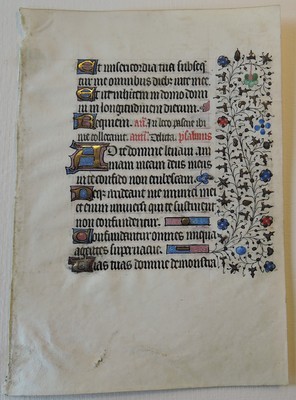 Et misericordia tua subseq
tur me omnibus dieb; vite mee
Et ut inhitem in domo domi
ni in longitudinem dierum.
Requiem. an. In loco pascue ibi
me collocauit. an. Delicta. psalmus
Ad te domine leuaui ani
mam meam deus meus
in te confido non erubescam.
Neq; irrideant me inimici mei
et enim uniuersi qui te sustinent
non confundentur.
Confundantur omnes iniqua
agentes superuacue.
Uias tuas domine demonstra